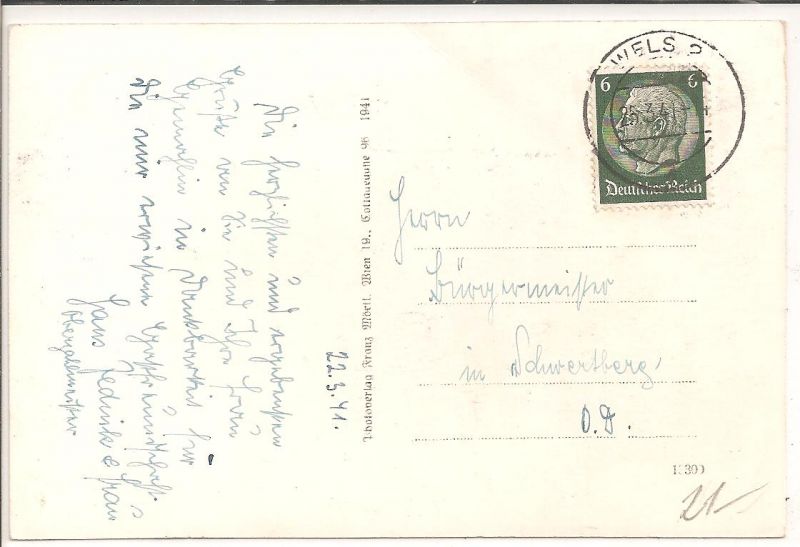 Die herzlichsten und ergebensten
Grüße an Sie und Ihre Frau
Gemahlin in Dankbarkeit für
die mir erwiesene Gastfreundschaft.
Hans
& Frau
Oberzahlmeister
22.3.41.
Photoverlag Franz Mörtl, Wien 19., Cottagegasse 46 1941
WELS 2
25.3.41
6 6
Deutsches Reich
Herrn
Bürgermeister
in Schwertberg,
O.D.
21